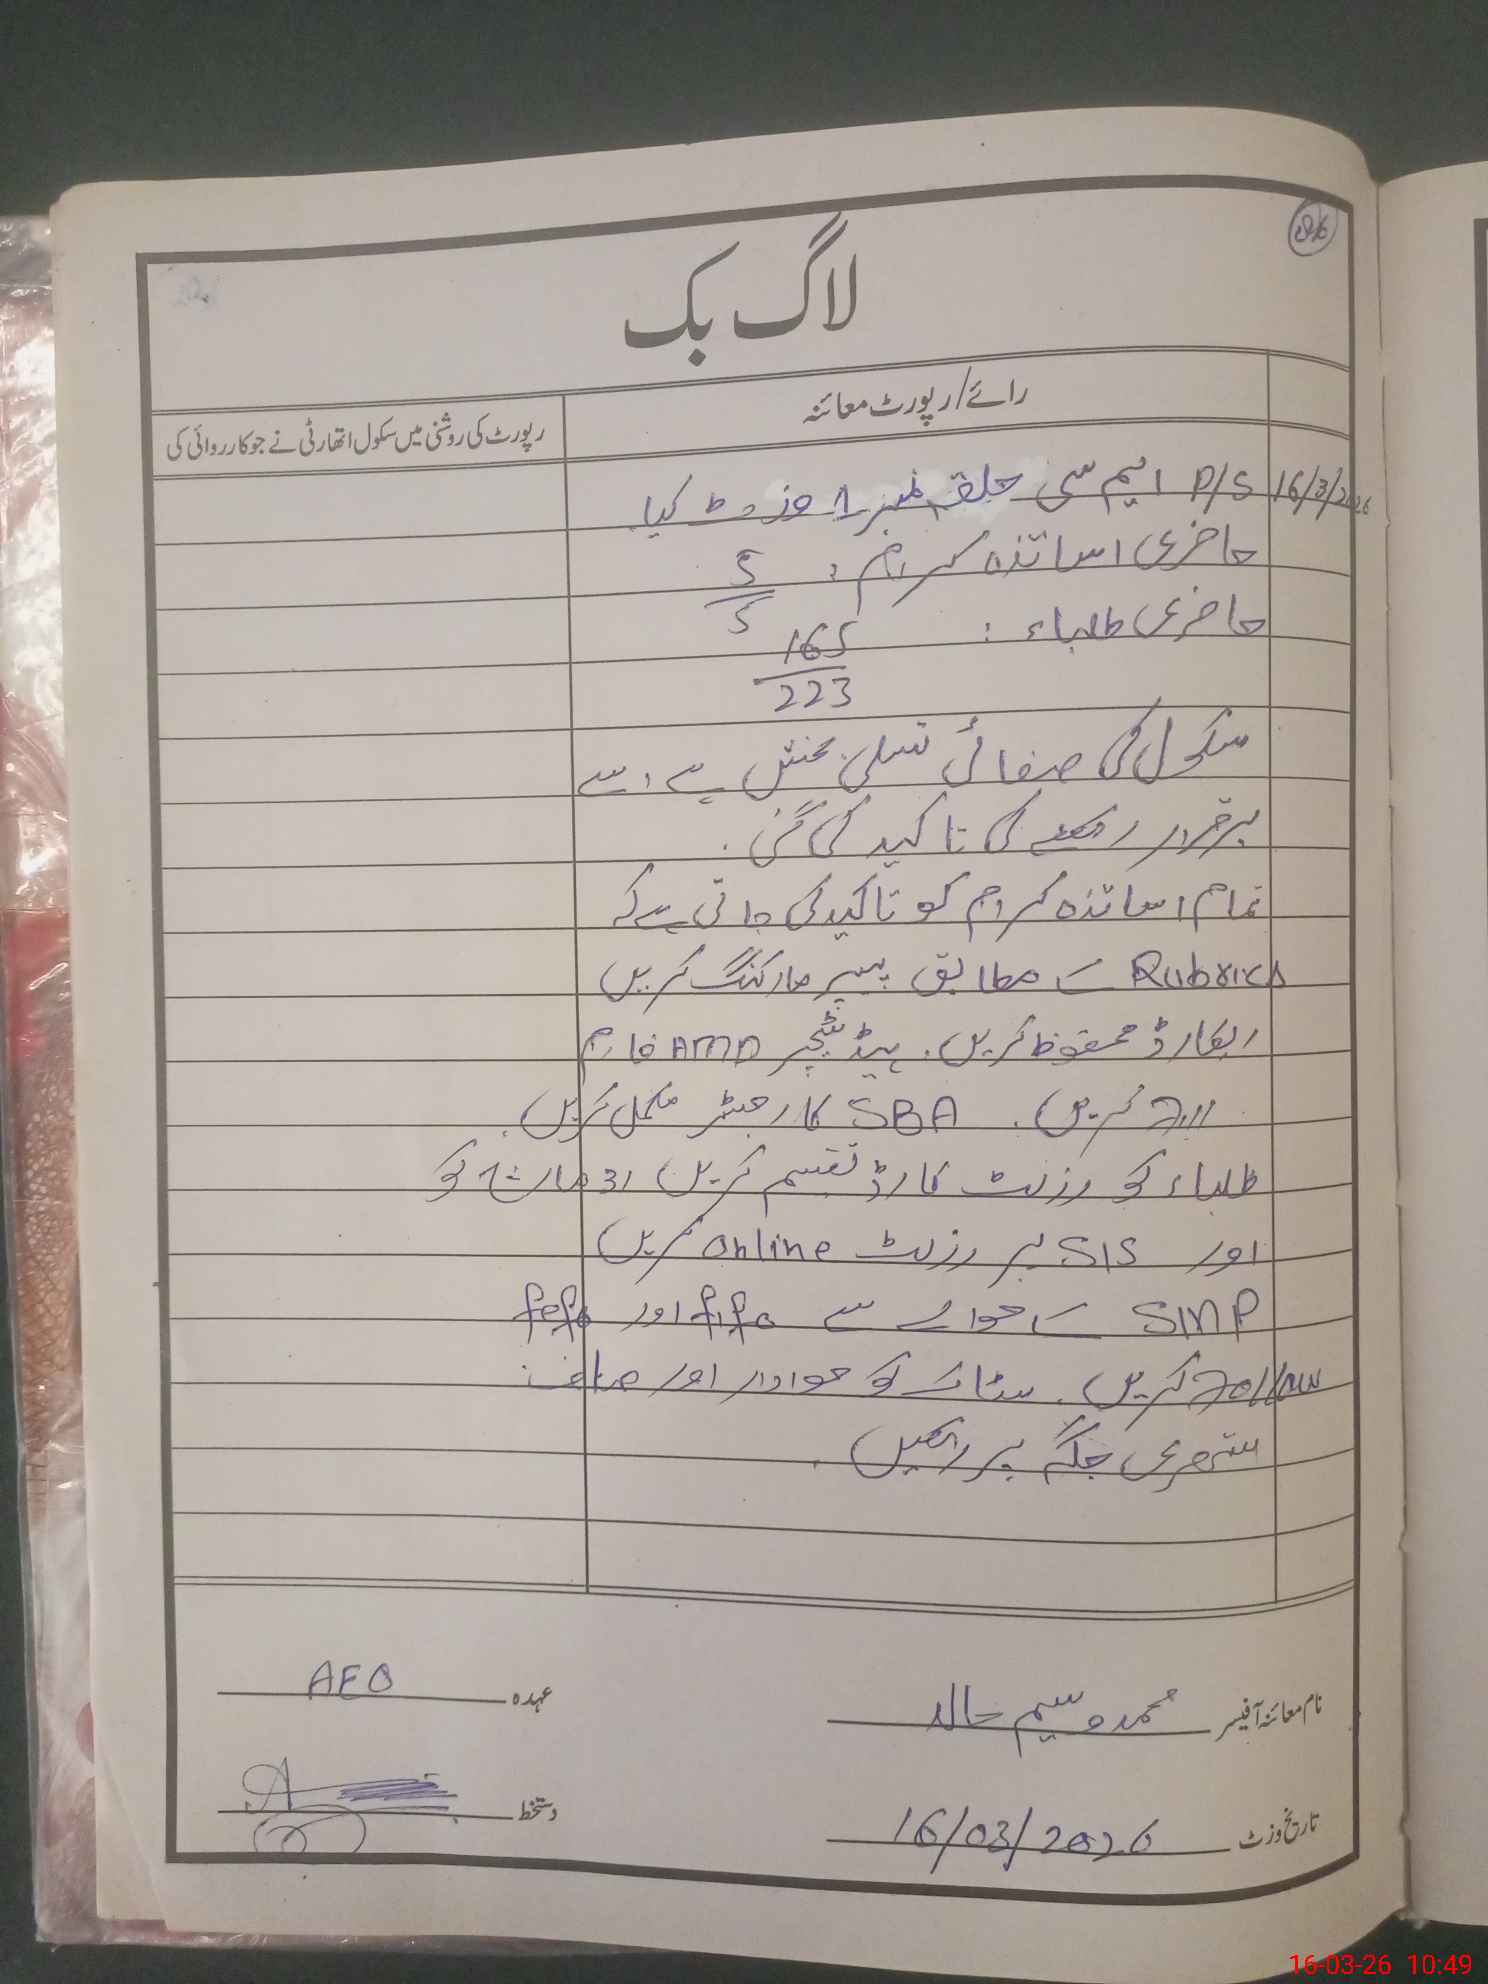 لاگ بک
رائے/رپورٹ معائنہ
رپورٹ کی روشنی میں سکول اتھارٹی نے جو کارروائی کی
16/3/2026 P/S ایم سی حلقہ نمبر 1 وزٹ کیا
حاضری اساتذہ کرام : 5/5
حاضری طلباء : 165/223
سکول کی صفائی تسلی بخش ہے اسے
برقرار رکھنے کی تاکید کی گئی.
تمام اساتذہ کرام کو تاکید کی جاتی ہے کہ
Rubrics کے مطابق پیپر مارکنگ کریں
ریکارڈ محفوظ کریں. ہیڈ ٹیچر فارم
کریں. SBA کا رجسٹر مکمل کریں.
طلباء کو رزلٹ کارڈ تقسیم کریں 31 مارچ کو
اور SIS پر رزلٹ online کریں
SMP کے حوالے سے fifo اور fefo
Follow کریں. سٹاک کو ہوادار اور صاف
ستھری جگہ پر رکھیں.
نام معائنہ آفیسر محمد وسیم خالد
عہدہ AEO
تاریخ وزٹ 16/03/2026
دستخط
16-03-26 10:49